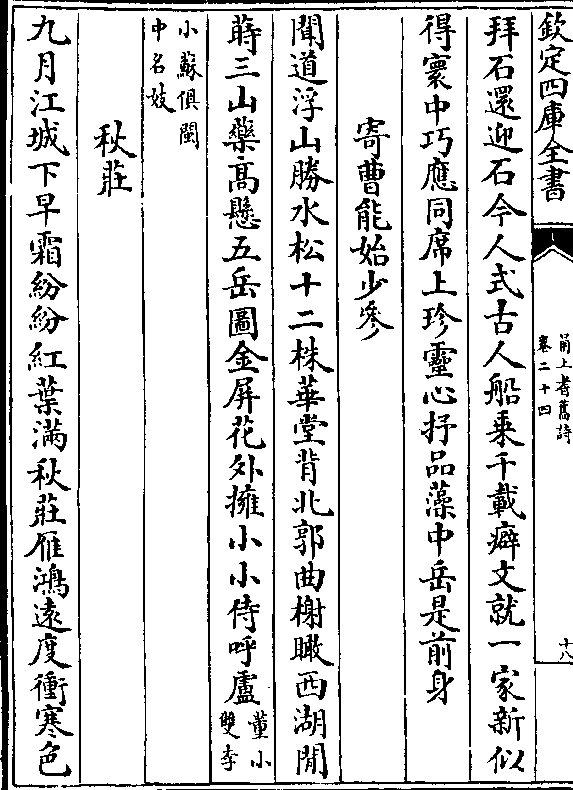 欽定四庫全書
甬上耆舊詩
卷二十四
十八
拜石還迎石今人式古人船乗千載癖文就一家新似
得寰中巧應同席上珍靈心抒品藻中岳是前身
寄曹能始少參
聞道浮山勝水松十二株華堂背北郭曲榭瞰西湖閒
蒔三山藥髙懸五岳圖金屏花外擁小小侍呼盧董小
雙李
小蘇俱閩
中名妓
秋莊
九月江城下早霜紛紛紅葉滿秋莊雁鴻遠度衝寒色